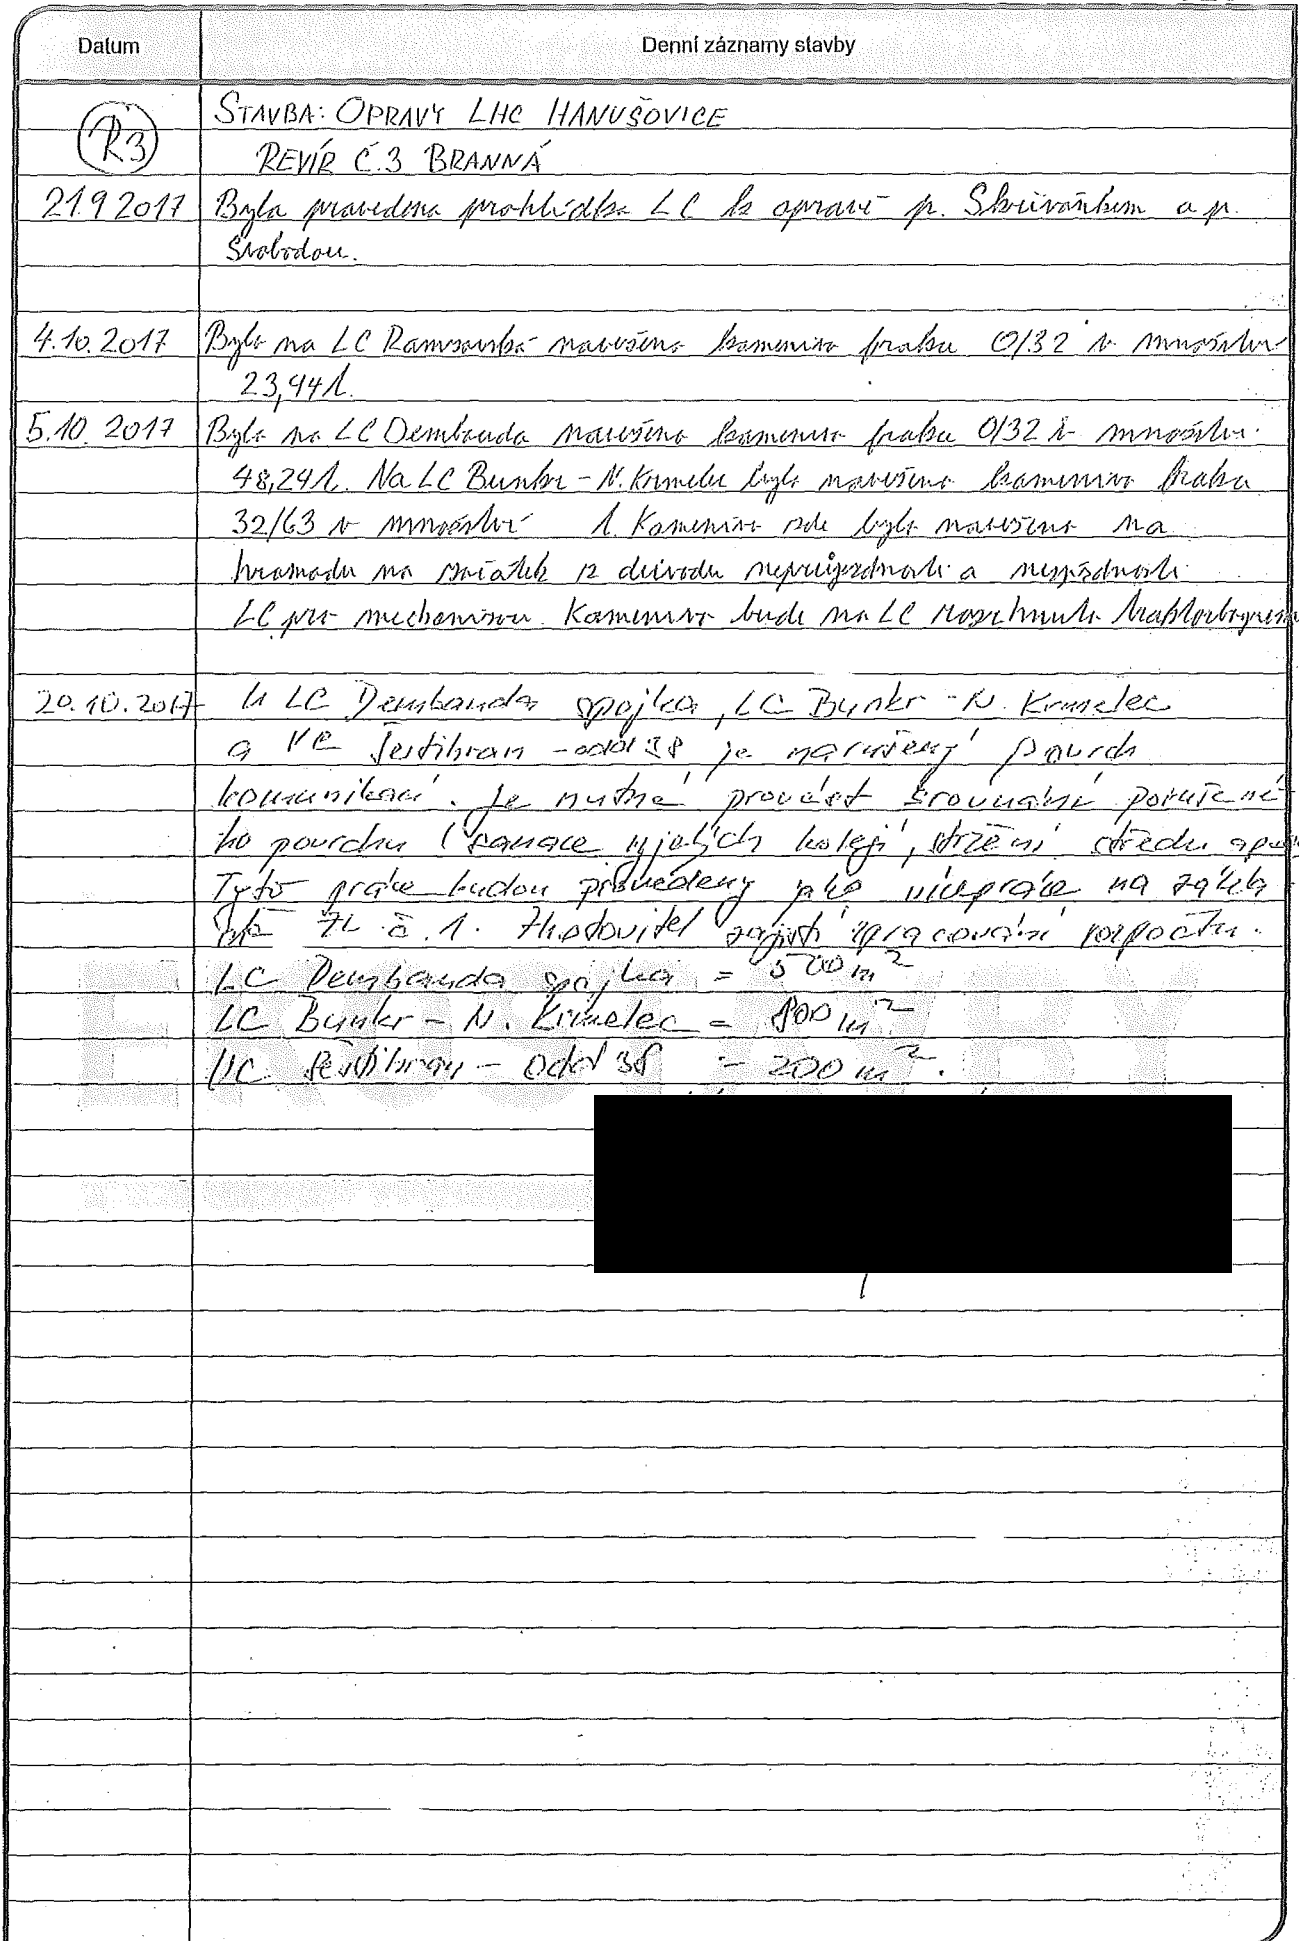 Datum Denní záznamy stavby
R3 STAVBA: OPRAVY LHC HANUŠOVICE
REVÍR Č.3 BRANNÁ
21.9 2017 Byla provedena prohlídka LC k opravě p. Skřivánkem a p.
Svobodou.
4.10.2017 Bylo na LC Ramzovská navezeno kamenivo fraku 0/32 v množství
23,94t.
5.10.2017 Bylo na LC Dembauda navezeno kamenivo fraku 0/32 v množství
48,24t. Na LC Bunkr - N. Krmelec bylo navezeno kamenivo fraku
32/63 v množství t. Kamenivo zde bylo navezeno na
hromadu na začátek z důvodu neprůjezdnosti a nesjízdnosti
LC pro mechanizaci. Kamenivo bude na LC rozhrnuto traktorbagrem
20.10.2017 U LC Dembauda spojka, LC Bunkr - N. Krmelec
a - odd 38 je narušený povrch
komunikací. Je nutné provést srovnání porušené-
ho povrchu (sanace vyjetých kolejí, stržení středu
Tyto práce budou provedeny jako vícepráce na
ZL č. 1. Zhotovitel zajistí zpracování rozpočtu.
LC Dembauda spojka = 500 m²
LC Bunkr - N. Krmelec = 800 m²
- odd 38 = 200 m².